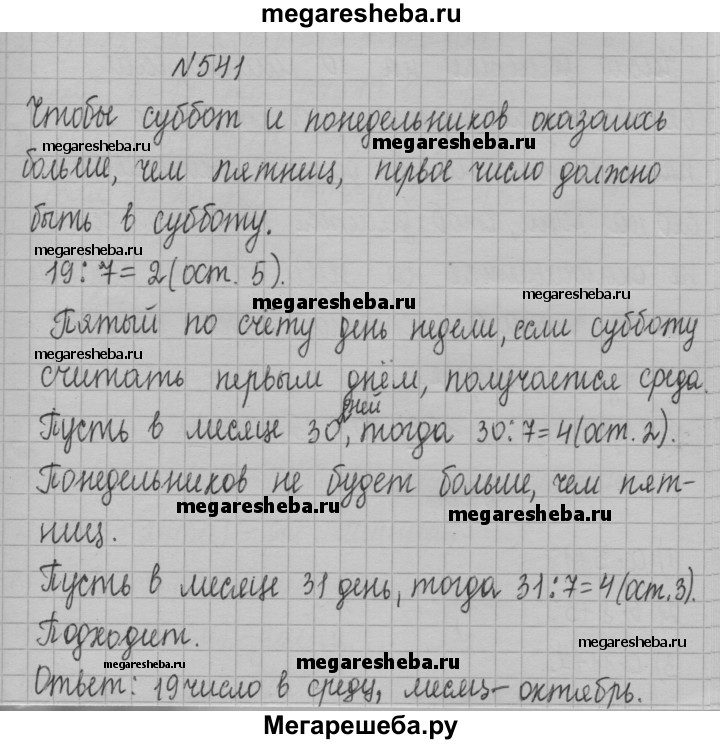 megaresheba.ru
№541
megaresheba.ru
Чтобы суббот и понедельников оказалась
megaresheba.ru megaresheba.ru
больше, чем пятниц, первое число должно
быть в субботу.
megaresheba.ru
19:7=2(ост. 5).
megaresheba.ru megaresheba.ru
Пятый по счёту день недели, если субботу
megaresheba.ru
считать первым днём, получается среда.
Пусть в месяце 30 дней, тогда 30:7=4(ост. 2).
Понедельников не будет больше, чем пят-
megaresheba.ru megaresheba.ru
ниц.
Пусть в месяце 31 день, тогда 31:7=4(ост. 3).
Подходит.
megaresheba.ru megaresheba.ru megaresheba.ru
Ответ: 19 число в среду, месяц - октябрь.
megaresheba.ru
Мегарешеба.ру